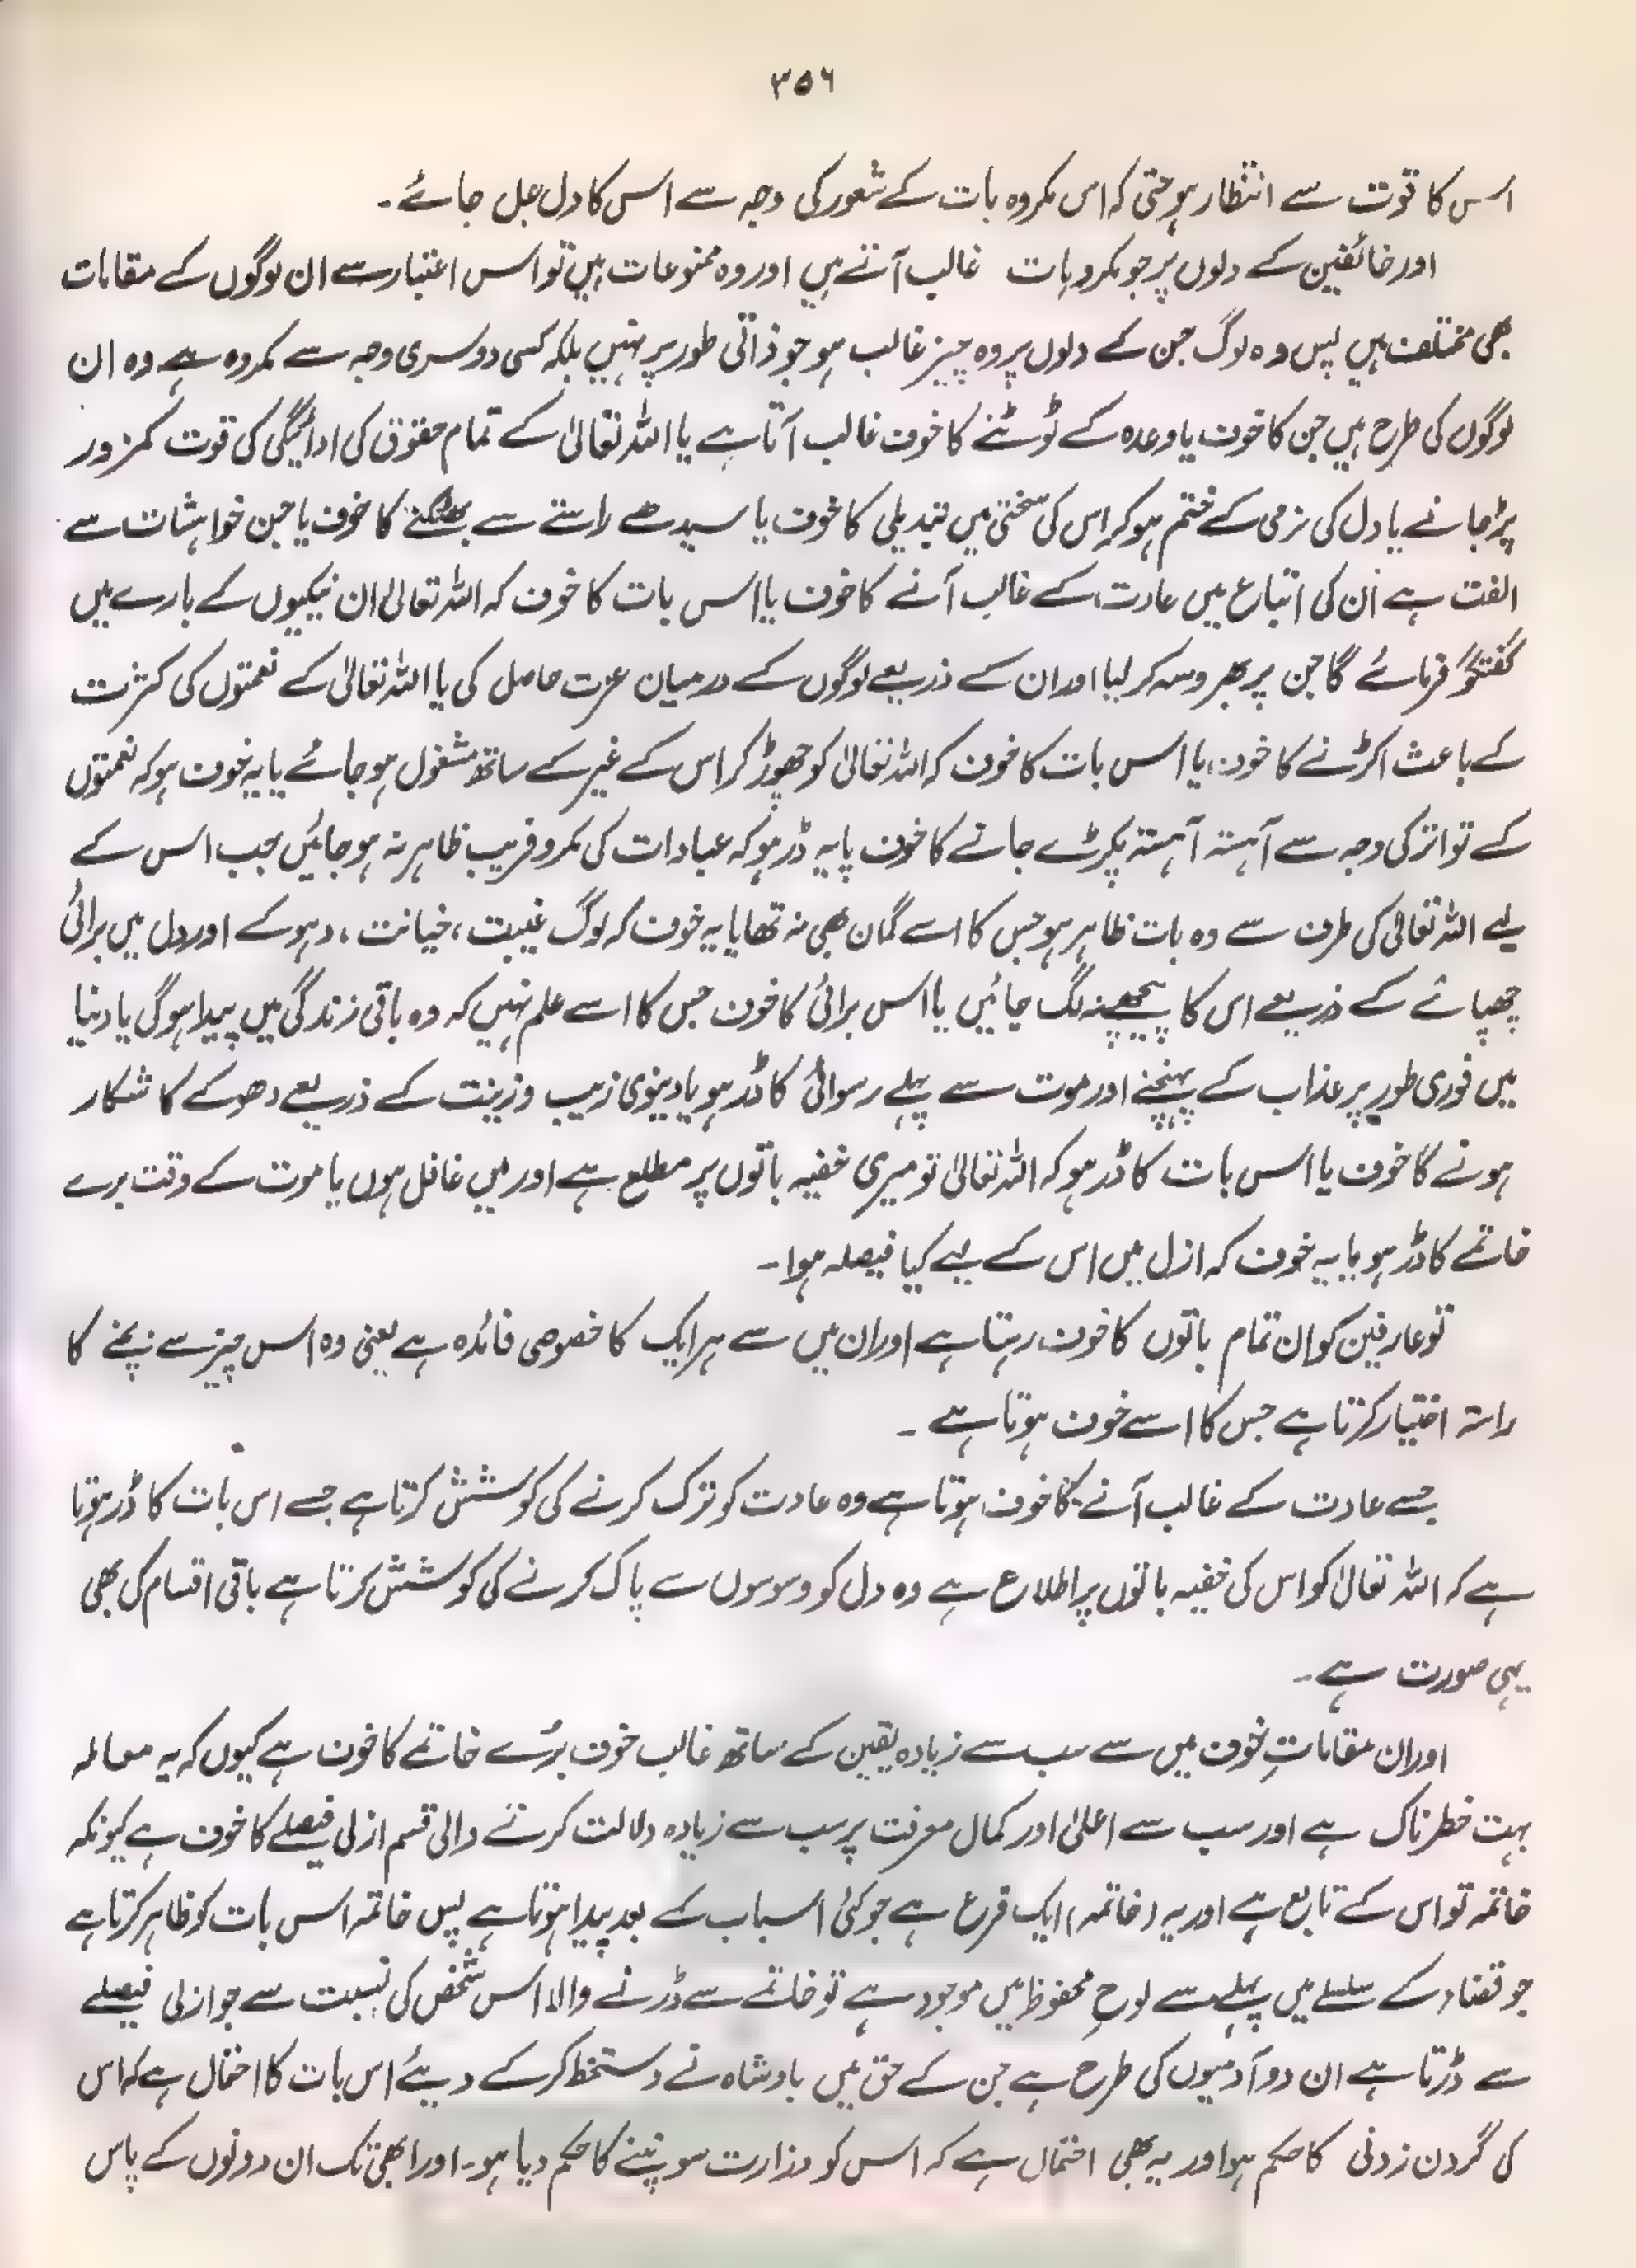 ۳۵۶
اس کا قوت سے انتظار ہو حتی کہ اس مکروہ بات کے شعور کی وجہ سے اس کا دل جل جائے۔
اور خائفین کے دلوں پر جو مکروہات غالب آتے ہیں اور وہ ممنوعات ہیں تو اس اعتبار سے ان لوگوں کے مقامات
بھی مختلف ہیں پس وہ لوگ جن کے دلوں پر وہ چیز غالب ہو جو ذاتی طور پر نہیں بلکہ کسی دوسری وجہ سے مکروہ ہے وہ ان
لوگوں کی طرح ہیں جن کا خوف یا وعدہ کے ٹوٹنے کا خوف غالب آتا ہے یا اللہ تعالیٰ کے تمام حقوق کی ادائیگی کی قوت کمزور
پڑ جانے یا دل کی نرمی کے ختم ہو کر اس کی سختی میں تبدیلی کا خوف یا سیدھے راستے سے بھٹکنے کا خوف یا جن خواہشات سے
الفت ہے ان کی اتباع میں عادت کے غالب آنے کا خوف یا اس بات کا خوف کہ اللہ تعالیٰ ان نیکیوں کے بارے میں
گفتگو فرمائے گا جن پر بھروسہ کر لیا اور ان کے ذریعے لوگوں کے درمیان عزت حاصل کی یا اللہ تعالیٰ کے نعمتوں کی کثرت
کے باعث اکڑنے کا خوف، یا اس بات کا خوف کہ اللہ تعالیٰ کو چھوڑ کر اس کے غیر کے ساتھ مشغول ہو جائے یا یہ خوف ہو کہ نعمتوں
کے تواتر کی وجہ سے آہستہ آہستہ پکڑے جانے کا خوف یا یہ ڈر ہو کہ عبادات کی مکر و فریب ظاہر نہ ہو جائیں جب اس کے
لیے اللہ تعالیٰ کی طرف سے وہ بات ظاہر ہو جس کا اسے گمان بھی نہ تھا یا یہ خوف کہ لوگ غیبت، خیانت، دہوکے اور دل میں برائی
چھپانے کے ذریعے اس کا پیچھے نہ لگ جائیں یا اس برائی کا خوف جس کا اسے علم نہیں کہ وہ باقی زندگی میں پیدا ہوگی یا دنیا
میں فوری طور پر عذاب کے پہنچنے اور موت سے پہلے رسوائی کا ڈر ہو یا دینوی زیب و زینت کے ذریعے دھوکے کا شکار
ہونے گا خوف یا اس بات کا ڈر ہو کہ اللہ تعالیٰ تو میری خفیہ باتوں پر مطلع ہے اور میں غافل ہوں یا موت کے وقت برے
خاتمے کا ڈر ہو یا یہ خوف کہ ازل میں اس کے لیے کیا فیصلہ ہوا۔
تو عارفین کو ان تمام باتوں کا خوف رہتا ہے اور ان میں سے ہر ایک کا خصوصی فائدہ ہے یعنی وہ اس چیز سے بچنے کا
راستہ اختیار کرتا ہے جس کا اسے خوف ہوتا ہے۔
جسے عادت کے غالب آنے کا خوف ہوتا ہے وہ عادت کو ترک کرنے کی کوشش کرتا ہے جسے اس بات کا ڈر ہوتا
ہے کہ اللہ تعالیٰ کو اس کی خفیہ باتوں پر اطلاع ہے وہ دل کو وسوسوں سے پاک کرنے کی کوشش کرتا ہے باقی اقسام کی بھی
یہی صورت ہے۔
اور ان مقاماتِ خوف میں سے سب سے زیادہ یقین کے ساتھ غالب خوف بُرے خاتمے کا خوف ہے کیوں کہ یہ معاملہ
بہت خطرناک ہے اور سب سے اعلیٰ اور کمال معرفت پر سب سے زیادہ دلالت کرنے والی قسم ازلی فیصلے کا خوف ہے کیونکہ
خاتمہ تو اس کے تابع ہے اور یہ (خاتمہ) ایک فرع ہے جو کئی اسباب کے بعد پیدا ہوتا ہے پس خاتمہ اس بات کو ظاہر کرتا ہے
جو قضاء کے سلسلے میں پہلے سے لوحِ محفوظ میں موجود ہے تو خاتمے سے ڈرنے والا اس شخص کی نسبت سے جو ازلی فیصلے
سے ڈرتا ہے ان دو آدمیوں کی طرح ہے جن کے حق میں بادشاہ نے دستخط کر کے دیئے اس بات کا احتمال ہے کہ اس
کی گردن زدنی کا حکم ہو اور یہ بھی احتمال ہے کہ اس کو وزارت سونپنے کا حکم دیا ہو۔ اور ابھی تک ان دونوں کے پاس